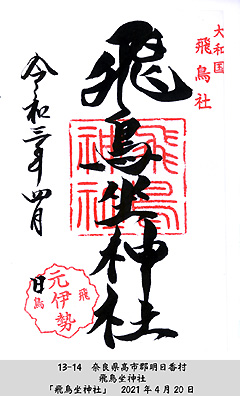 大和国
飛鳥社
飛鳥坐神社
飛鳥神社
令和三年四月
日
飛鳥
元伊勢
13-14 奈良県高市郡明日香村
飛鳥坐神社
「飛鳥坐神社」 2021年4月20日